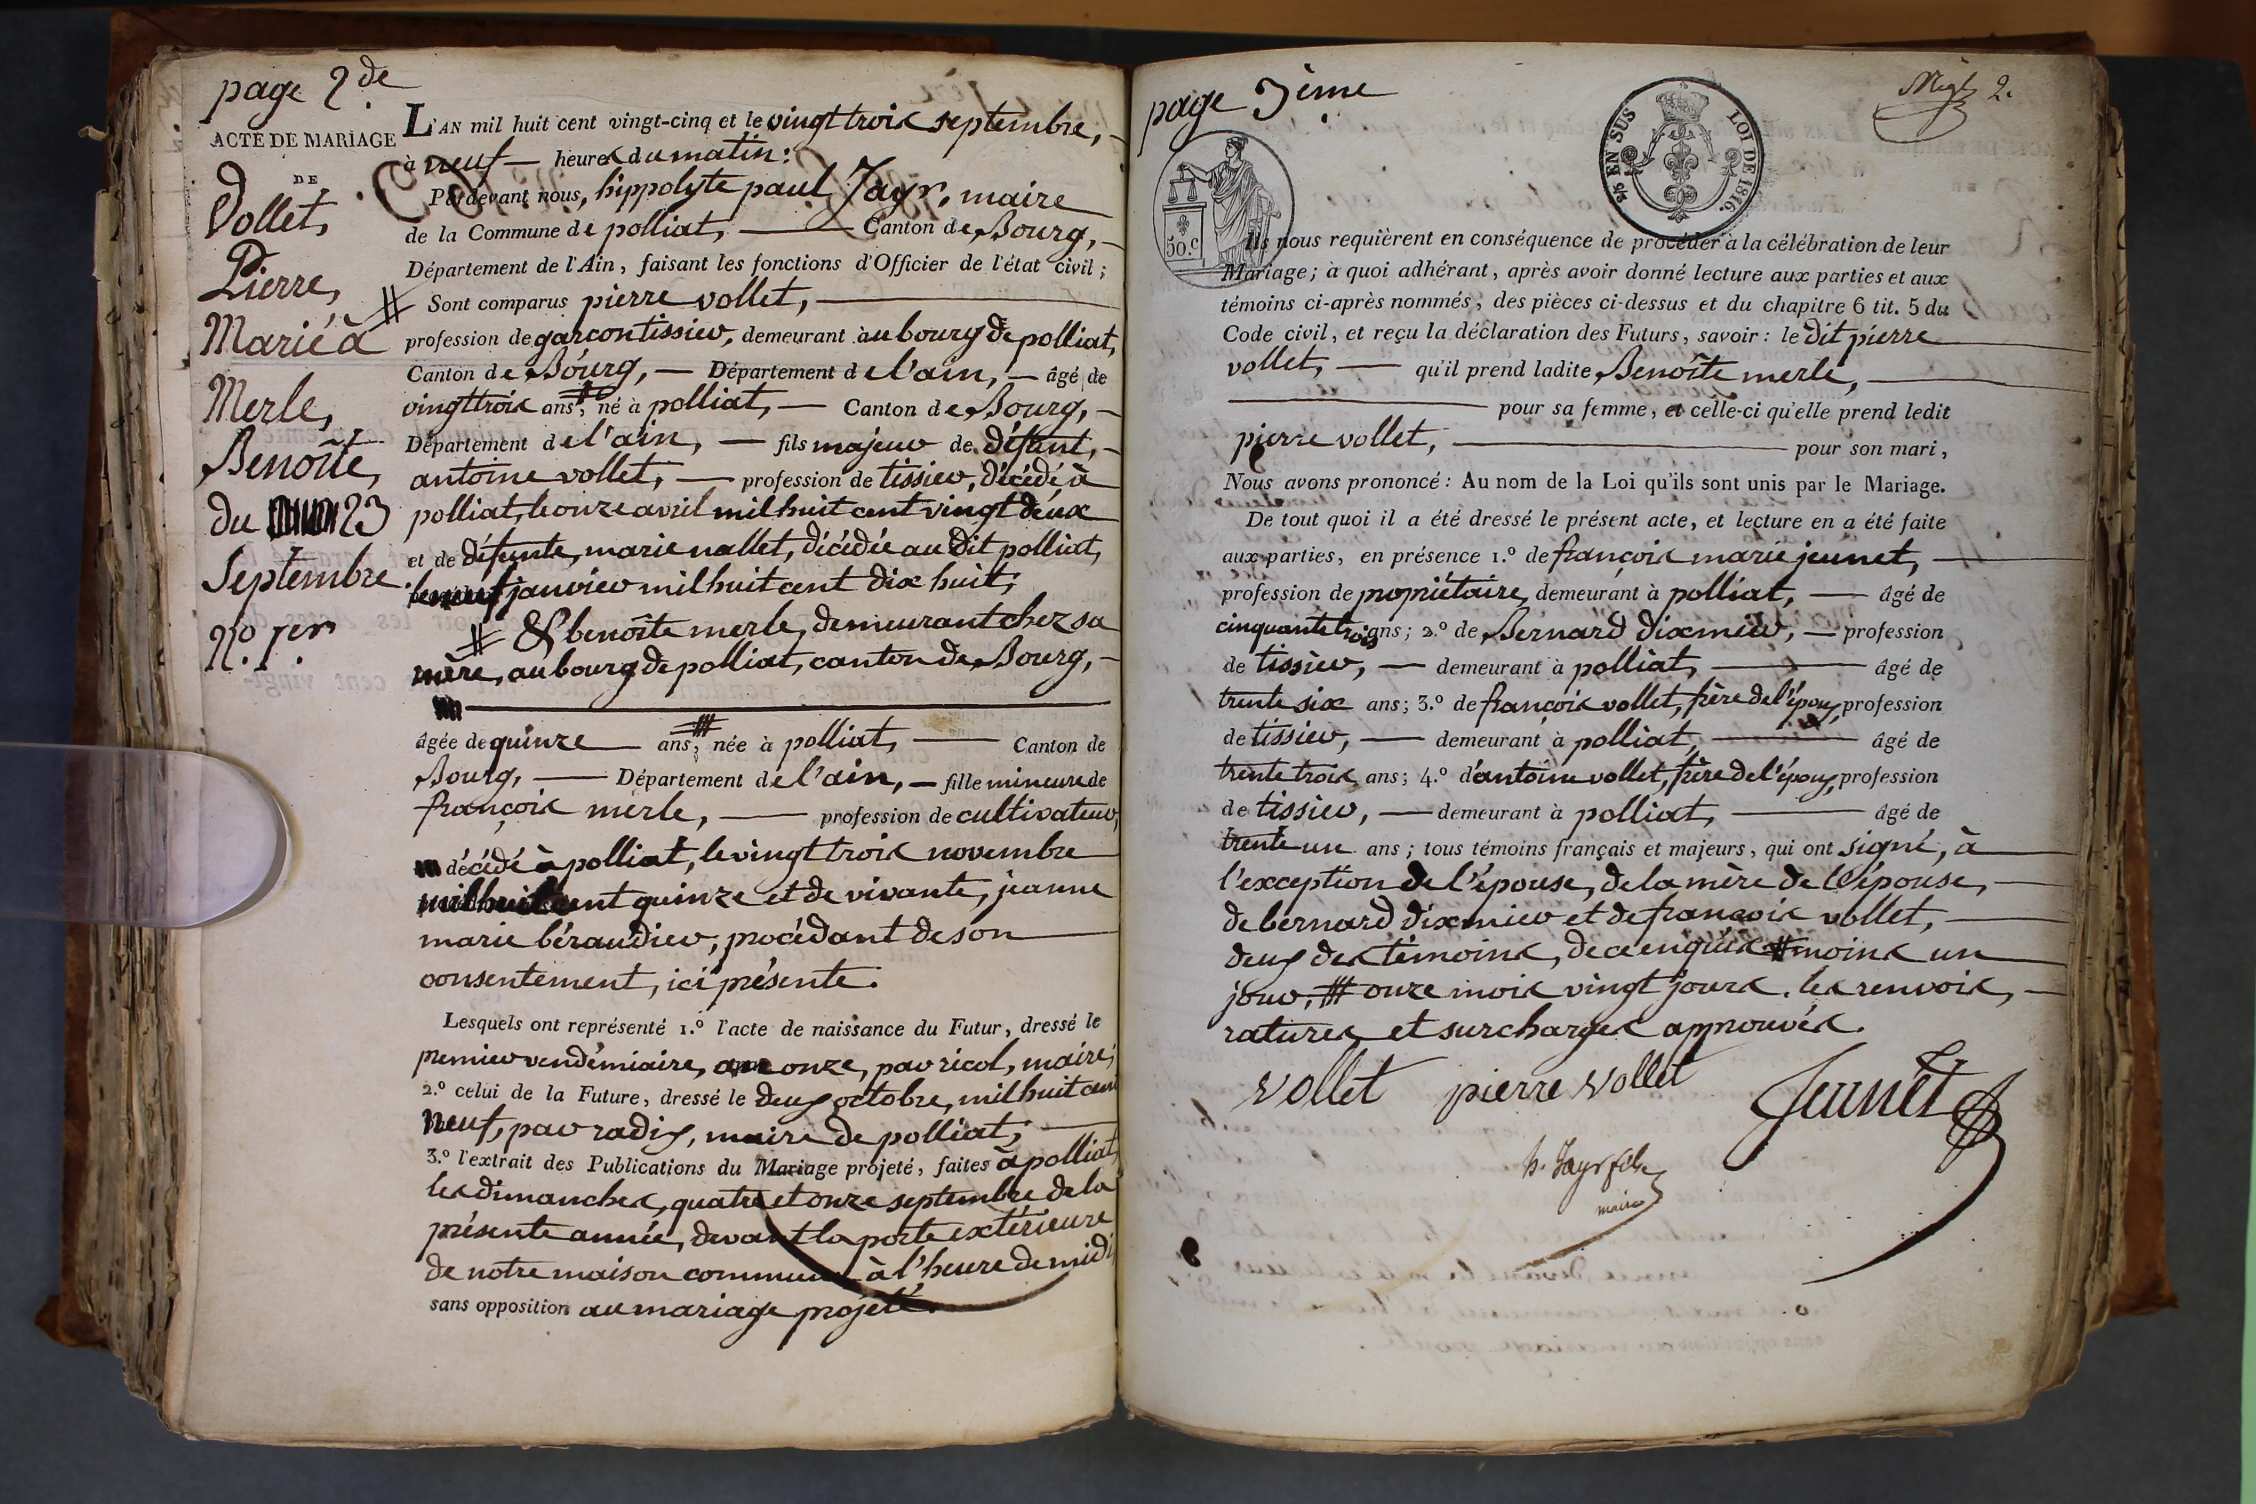 page 2de
ACTE DE MARIAGE
DE
Vollet,
Pierre,
Marié à
Merle,
Benoîte,
du 23
Septembre.
N.º 1er.
L'AN mil huit cent vingt-cinq et le vingt trois septembre,
à neuf heures du matin:
Pardevant nous, hippolyte paul Jayr, maire
de la Commune de polliat, Canton de Bourg,
Département de l'Ain, faisant les fonctions d'Officier de l'état civil;
# Sont comparus pierre vollet,
profession de garcon tissier, demeurant au bourg de polliat,
Canton de Bourg, Département de l'ain, âgé de
vingt trois ans #, né à polliat, Canton de Bourg,
Département de l'ain, fils majeur de défunt,
antoine vollet, profession de tissier, décédé à
polliat, le onze avril mil huit cent vingt deux
et de défunte, marie nallet, décédée au dit polliat,
le neuf janvier mil huit cent dix huit;
# & benoîte merle, demeurant chez sa
mère, au bourg de polliat, canton de Bourg,
âgée de quinze ans ⧻, née à polliat, Canton de
Bourg, Département de l'ain, fille mineure de
françois merle, profession de cultivateur,
décédé à polliat, le vingt trois novembre
mil huit cent quinze et de vivante, jeanne
marie béraudier, procédant de son
consentement, ici présente.
Lesquels ont représenté 1.º l'acte de naissance du Futur, dressé le
premier vendémiaire, an onze, par ricol, maire;
2.º celui de la Future, dressé le deux octobre, mil huit cent
neuf, par radix, maire de polliat;
3.º l'extrait des Publications du Mariage projeté, faites à polliat,
les dimanches, quatre et onze septembre de la
présente année, devant la porte extérieure
de notre maison commune à l'heure de midi
sans opposition au mariage projeté.
page 3ième
2.
50.C
EN SUS
LOI DE 1816.
Ils nous requièrent en conséquence de procéder à la célébration de leur
Mariage; à quoi adhérant, après avoir donné lecture aux parties et aux
témoins ci-après nommés, des pièces ci-dessus et du chapitre 6 tit. 5 du
Code civil, et reçu la déclaration des Futurs, savoir: le dit pierre
vollet, qu'il prend ladite Benoîte merle,
pour sa femme, et celle-ci qu'elle prend ledit
pierre vollet, pour son mari,
Nous avons prononcé: Au nom de la Loi qu'ils sont unis par le Mariage.
De tout quoi il a été dressé le présent acte, et lecture en a été faite
aux parties, en présence 1.º de françois marie jeunet,
profession de propriétaire, demeurant à polliat, âgé de
cinquante trois ans; 2.º de Bernard dixmier, profession
de tissier, demeurant à polliat, âgé de
trente six ans; 3.º de françois vollet, frère de l'époux, profession
de tissier, demeurant à polliat, âgé de
trente trois ans; 4.º d'antoine vollet, frère de l'époux, profession
de tissier, demeurant à polliat, âgé de
trente un ans; tous témoins français et majeurs, qui ont signé, à
l'exception de l'épouse, de la mère de l'épouse,
de bernard dixmier et de françois vollet,
deux des témoins, de ce enquis # moins un
jour, ⧻ onze mois vingt jours. les renvois,
ratures et surcharges approuvés.
Vollet pierre Vollet Jeunet
h. Jayr fils
maire